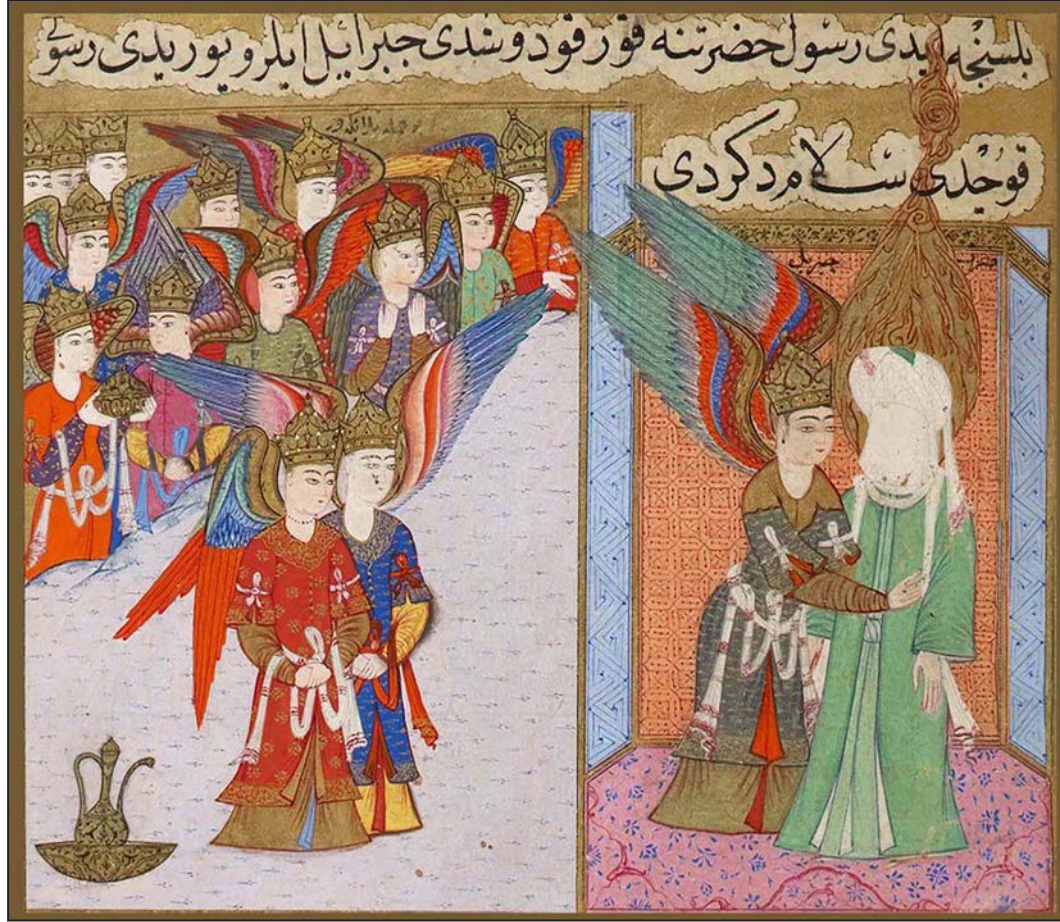 بلسنجه ایدی رسول حضرتنه قورقو دوشدی جبرائیل ایلرو یوریدی رسولی
قوجدی سلام دکردی
جبریل